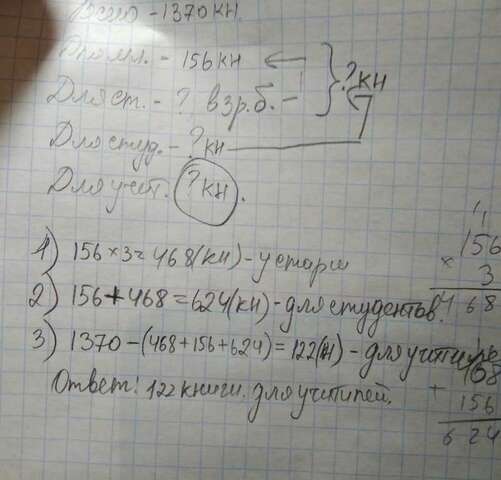 Всего - 1370 кн.
Для мл. - 156 кн
Для ст. - ? в 3 р. б.
? кн
Для студ. - ? кн
Для учит. ? кн.
1) 156 × 3 = 468 (кн) - у старш
2) 156 + 468 = 624 (кн) - для студентов.
3) 1370 - (468 + 156 + 624) = 122 (кн) - для учителей
Ответ: 122 книги для учителей.
156
× 3
468
+ 468
156
624